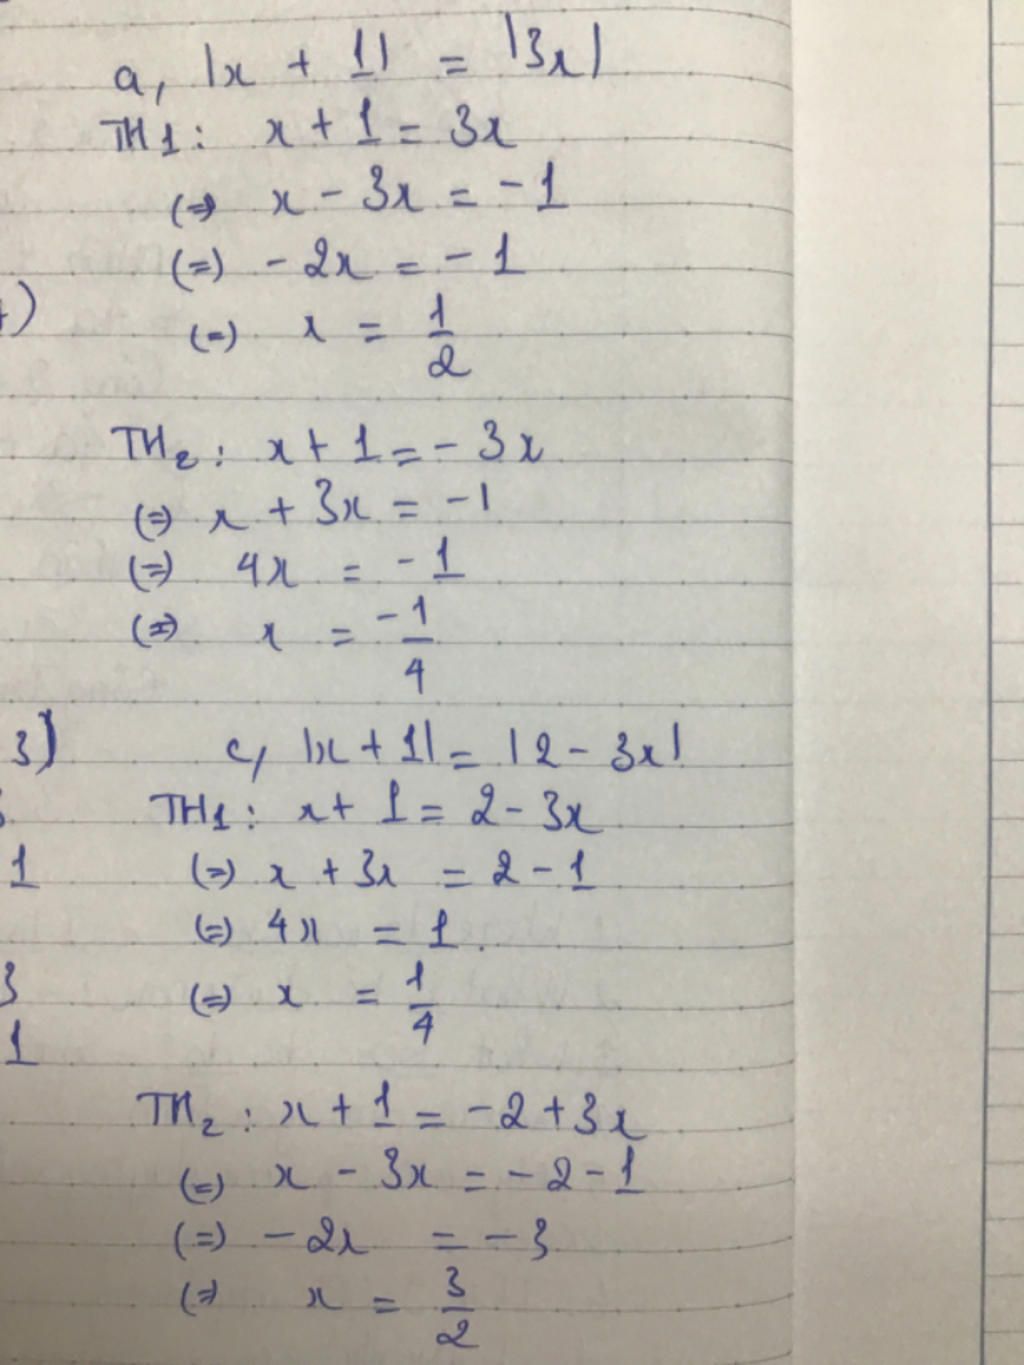 a, |x + 1| = |3x|
TH1: x + 1 = 3x
(=) x - 3x = -1
(=) - 2x = - 1
(=) x = 1/2
TH2: x + 1 = - 3x
(=) x + 3x = -1
(=) 4x = - 1
(=) x = -1/4
3)
c, |x + 1| = |2 - 3x|
TH1: x + 1 = 2 - 3x
1
(=) x + 3x = 2 - 1
(=) 4x = 1
3
(=) x = 1/4
1
TH2: x + 1 = -2 + 3x
(=) x - 3x = - 2 - 1
(=) - 2x = - 3
(=) x = 3/2